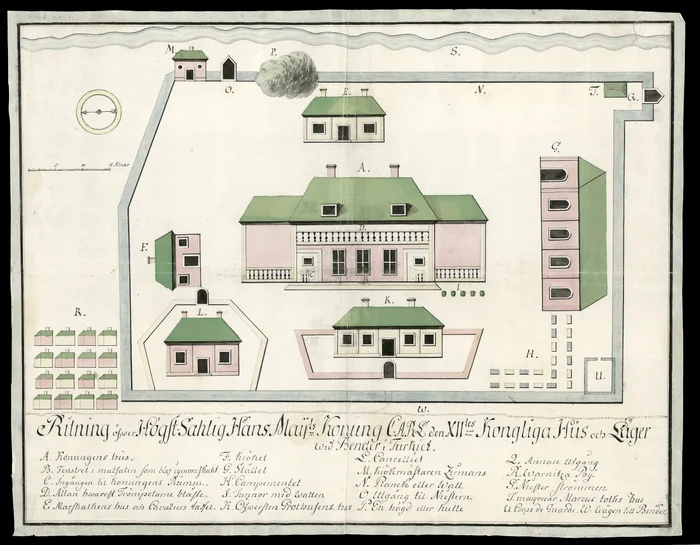 M.
O.
P.
S.
N.
T.
Q.
E.
A.
G.
D.
F.
C.
B.
I.
L.
K.
R.
H.
U.
W.
Ritning öfwer Högst Sahlig Hans Maÿ:ts Konung CARL den XII:tes Kongliga Hus och Läger
wid Bender i Turkiet.
A. Konungens hus.
B. Fenstret i matsalen som blef igenom
C. Ingången til Konungens Rum.
D. Altan hwarest Trompetarne blåste.
E. Marskalkens hus och Cavalliers taffel.
F. Kiöket
G. Stallet
H. Campementet
I. Tunnor med watten
K. Öfwersten Grothusens hus
L. Cancelliet
M. Kiökmästaren
N. Planck eller Wall
O. Utgång til Niestern.
P. En högd eller kulle
Q. Annan Utgång
R. Warnitza By.
S. Niester strömmen
T. Marcus hus
U. Corps de Guarde. W. Wägen till Bender